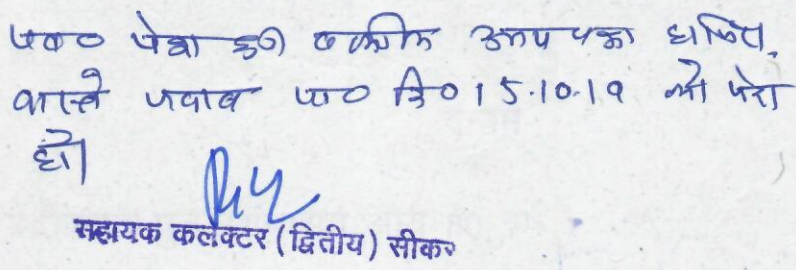 पत्र० पेश हुई। वकील उभय पक्ष हाजिर,
वास्ते जवाब प्रा० दि० 15.10.19 को पेश
हो।
सहायक कलेक्टर (द्वितीय) सीकर